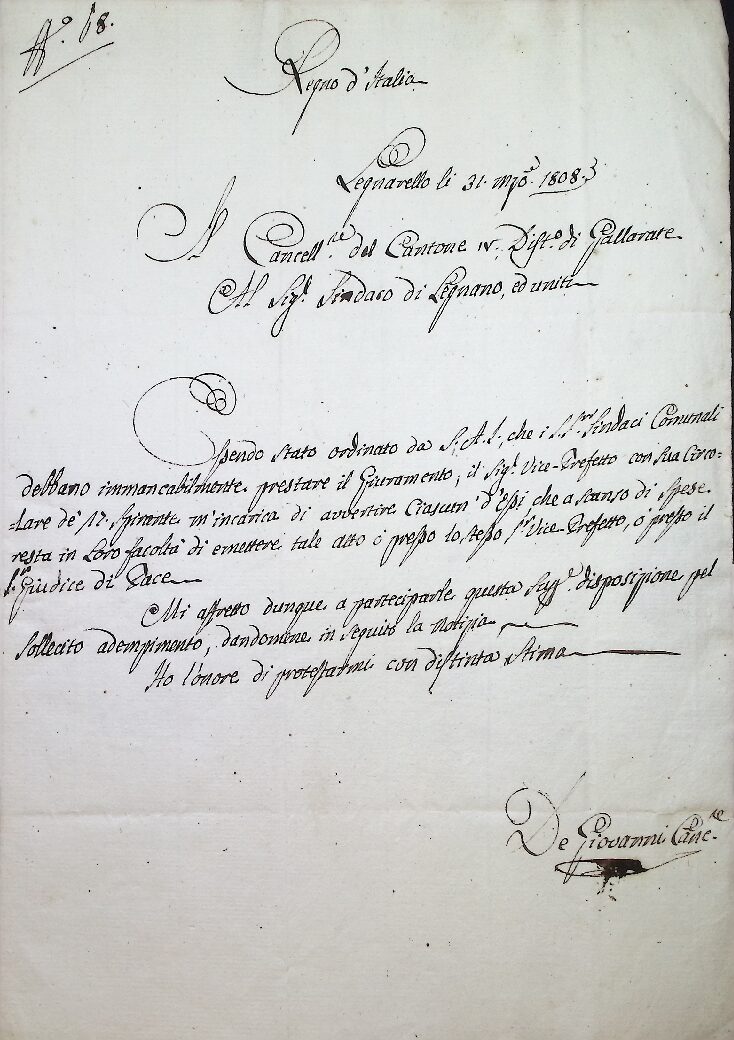 N.º 18.
Regno d'Italia
Legnarello li 31. mzo. 1808.
Il Cancell.re del Cantone IV. Dist.o di Gallarate
Al Sig.r Sindaco di Legnano, ed uniti
Essendo stato ordinato da S. A. I., che i S.S.ri Sindaci Comunali
debbano immancabilmente prestare il Giuramento, il Sig.r Vice-Prefetto con sua Circo-
-lare de' 17. spirante m'incarica di avvertire Ciascun' d'Essi, che a scanso di spese
resta in Loro facoltà di emettere tale atto ò presso lo stesso S.r Vice-Prefetto, ò presso il
S.r Giudice di Pace
Mi affretto dunque a partecipavle questa Sup.e disposizione pel
sollecito adempimento, dandomene in seguito la notizia
Ho l'onore di protestarmi con distinta stima
De Giovanni Canc.re